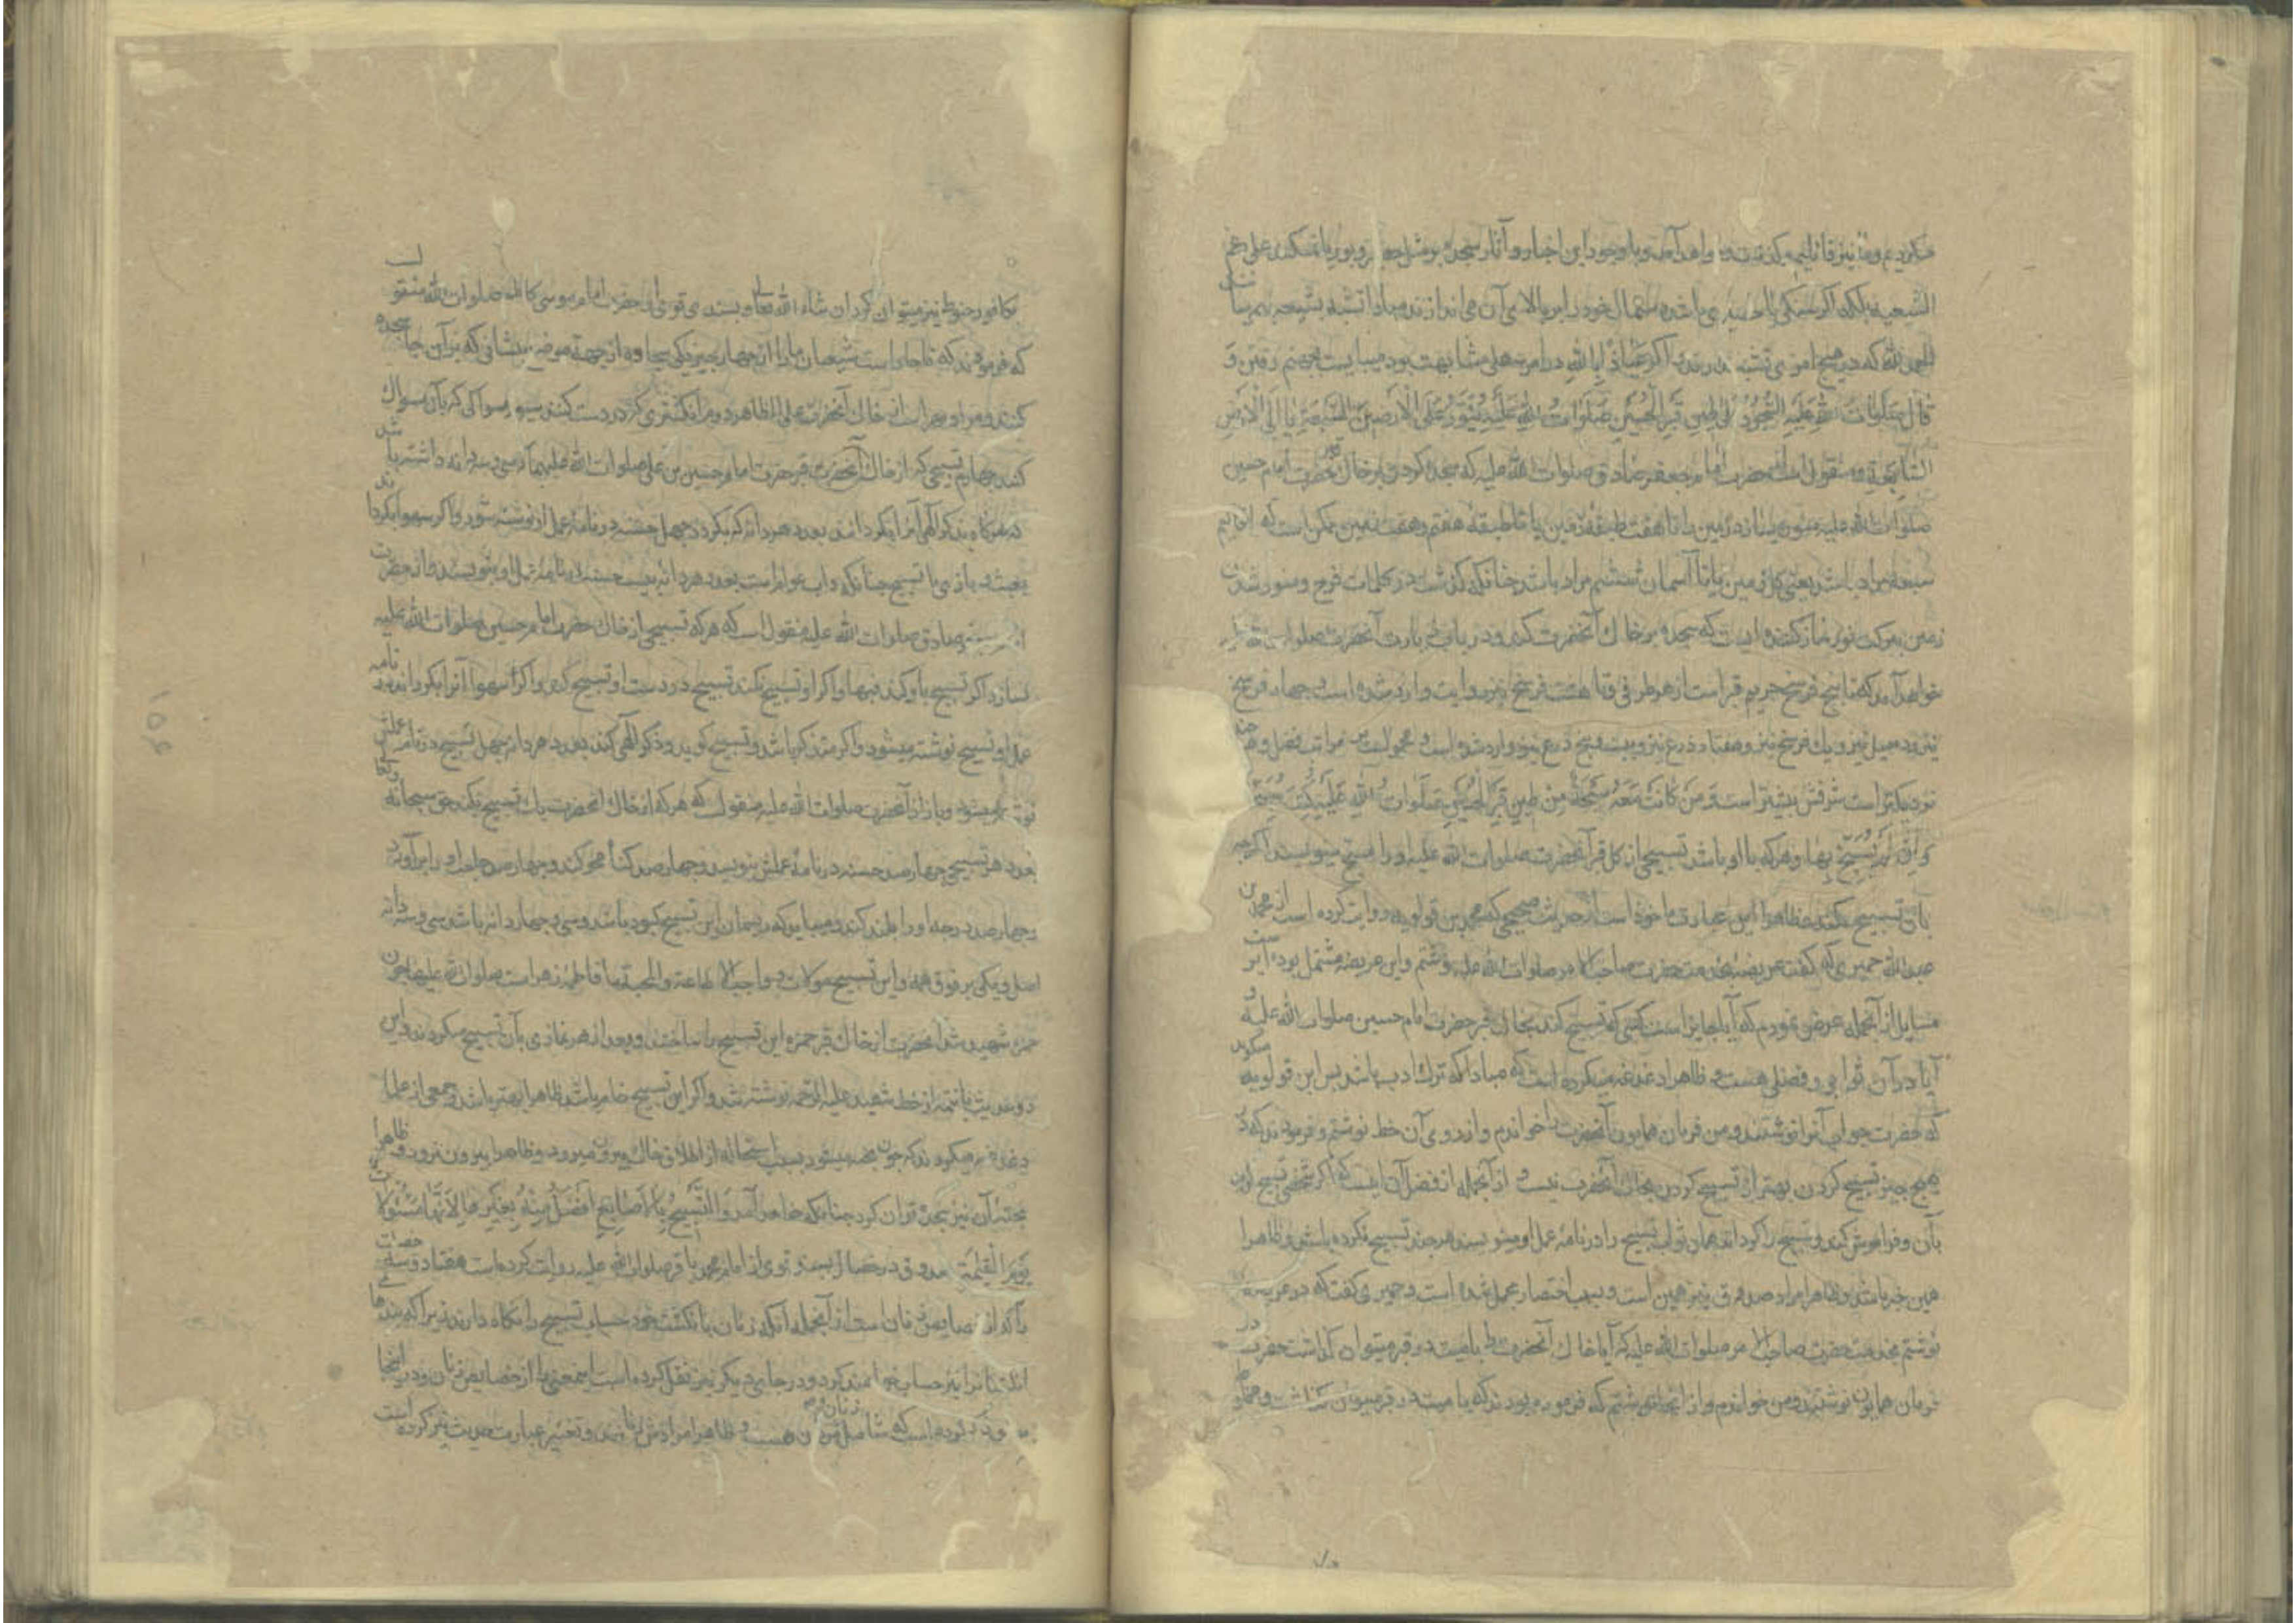 الشیعه بلکه اگر سنگی یا حصیری باشد دستمال خود را بر بالای آن می اندازند مبادا تشبه بشیعه بهم رسا
الحمد لله که در هیچ امری تشبه ندارند و اگر عیاذا بالله در امر سهلی مشابهت بود میبایست بجهنم رفتن و
قال صلوات الله علیه السُّجُودُ عَلی طِینِ قَبرِ الحُسَینِ صَلَوَاتُ اللهِ عَلَیهِ یُنَوِّرُ عَلَی الاَرَضِینَ السَّبعَةِ یا اِلَی الاَرضِ
السَّابِعَةِ و منقولست از حضرت امام جعفر صادق صلوات الله علیه که سجده کردن بر خاک قبر حضرت امام حسین
صلوات الله علیه منور میسازد زمین را تا هفت طبقه زمین یا تا طبقه هفتم و هفت زمین ممکن است که اقالیم
سبعه مراد باشد یعنی کل زمین یا تا آسمان ششم مراد باشد چنانکه گذشت در کلمات فرج و منور شدن
زمین ببرکت نور نماز کننده ایست که سجده بر خاک آنحضرت کند و در باب زیارت آنحضرت صلوات الله علیه
خواهد آمد که تا پنج فرسخ حریم قبر است از هر طرفی و تا هشت فرسخ نیز روایت وارد شده است و چهار فرسخ
نیز و ده میل نیز و یک فرسخ نیز و هفتاد ذرع نیز و بیست و پنج ذرع نیز وارد شده است و محمولست بر مراتب فضل و هر چند
نزدیکتر است شرفش بیشتر است وَ مَن کَانَت مَعَهُ سُبحَةٌ مِن طِینِ قَبرِ الحُسَینِ صَلَوَاتُ اللهِ عَلَیهِ کُتِبَ مُسَبِّحًا
وَ اِن لَم یُسَبِّح بِهَا و هر که با او باشد تسبیحی از گل قبر آنحضرت صلوات الله علیه او را مسبح مینویسند اگر چه
بان تسبیح نکند و ظاهرا این عبارت ماخوذ است از حدیث صحیحی که محمد بن قولویه روایت کرده است از محمد بن
عبدالله حمیری که گفت عریضه بخدمت حضرت صاحب الامر صلوات الله علیه نوشتم و این عریضه مشتمل بوده است بر
مسایل از آنجمله عرض نمودم که آیا جایز است کسی که تسبیح کند بخاک قبر حضرت امام حسین صلوات الله علیه و
آیا در آن ثوابی و فضلی هست و ظاهرا دغدغه میکرده است که مبادا که ترک ادب باشد پس ابن قولویه میگوید
که حضرت جواب آنرا نوشتند و من فرمان همایون آنحضرت را خواندم و از روی آن خط نوشتم و فرمودند که در
هیچ چیز تسبیح کردن بهتر از تسبیح کردن بخاک آنحضرت نیست و از آنجمله از فضل آن اینست که اگر شخصی تسبیح کند
بآن و فراموش کند و تسبیح را گرداند همان ثواب تسبیح را در نامه عمل او مینویسند هر چند تسبیح نکرده باشد و ظاهرا
همین خبر باشد و ظاهرا مراد صدوق نیز همین است و بسبب اختصار عمل شده است و حمیری گفت که در عریضه
نوشتم بخدمت حضرت صاحب الامر صلوات الله علیه که آیا خاک آنحضرت را با میت در قبر میتوان گذاشت حضرت در
فرمان همایون نوشتند و من خواندم و از انجا نوشتم که فرموده بودند که با میت در قبر میتوان گذاشت و مخلوط
بکافور حنوط نیز میتوان کرد ان شاء الله تعالی و بسندی قوی از حضرت امام موسی کاظم صلوات الله منقولست
که فرمودند که ناچار است شیعیان ما را از چهار چیز یکی سجاده از جهة موضع پیشانی که بر آن جا سجده
کنند و مراد مهر است از خاک آنحضرت علی الظاهر دویم انگشتری که در دست کنند سیوم مسواکی که بآن مسواک
کنند چهارم تسبیحی که از خاک قبر حضرت امام حسین بن علی صلوات الله علیهما که سی و سه دانه داشته باشد
که هرگاه بذکر الهی آنرا بگردانند بعدد هر دانه که بگردد چهل حسنه در نامه عمل او نوشته شود و اگر سهوا بگرداند
بعبث و بازی با تسبیح چنانکه داب عوام است بعدد هر دانه بیست حسنه در نامه عمل او بنویسند و از حضرت
صادق صلوات الله علیه منقول است که هر که تسبیحی از خاک حضرت امام حسین صلوات الله علیه
بسازد اگر تسبیح باو کند فبها و اگر او تسبیح نکند تسبیح در دست او تسبیح کند و اگر سهوا آنرا بگرداند در نامه
عمل او تسبیح نوشته میشود و اگر متذکر باشد و تسبیح گوید و ذکر الهی کند بعدد هر دانه چهل تسبیح در نامه عملش
نوشته میشود و باز از آنحضرت صلوات الله علیه منقولست که هر که از خاک آنحضرت یک تسبیح بکند حق سبحانه و تعالی
بعدد هر تسبیح چهار صد حسنه در نامه عملش بنویسد و چهار صد گناه محو کند و چهار صد حاجت او را برآورد
و چهار صد درجه او را بلند کند و میباید که ریسمان این تسبیح کبود باشد و سی و چهار دانه باشد سی و سه دانه
اصل و یکی بر فوق همه و این تسبیح مولات و واجب الاطاعة و المحبة ما فاطمه زهرا است صلوات الله علیها چون
حمزه شهید شد آنحضرت از خاک قبر حمزه این تسبیح را ساختند و بعد از هر نمازی بآن تسبیح میکردند و این
دو حدیث با تتمه از خط شهید علیه الرحمه نوشته شد و اگر این تسبیح خام باشد ظاهرا بهتر باشد و جمعی از علما
دغدغه میکردند که چون پخته میشود بسبب استحاله از اطلاق خاک بیرون میرود و ظاهرا بیرون نرود و ظاهرا
بپخته آن نیز سجده توان کرد چنانکه خواهد آمد وَ التَّسبِیحُ بِالاَصَابِعِ اَفضَلُ مِنهُ بِغَیرِهَا لِاَنَّهَا مَسئُولَاتٌ
یَومَ القِیَمَةِ صدوق در خصال بسند قوی از امام محمد باقر صلوات الله علیه روایت کرده است هفتاد و سه خصلت
را که از خصایص زنان است از آنجمله آنکه زنان بانگشت خود حساب تسبیح را نگاه دارند زیرا که بندهای
انگشتانرا نیز حساب خواهند کرد و در جای دیگر نیز نقل کرده است اینمعنی را از خصایص زنان و در اینجا